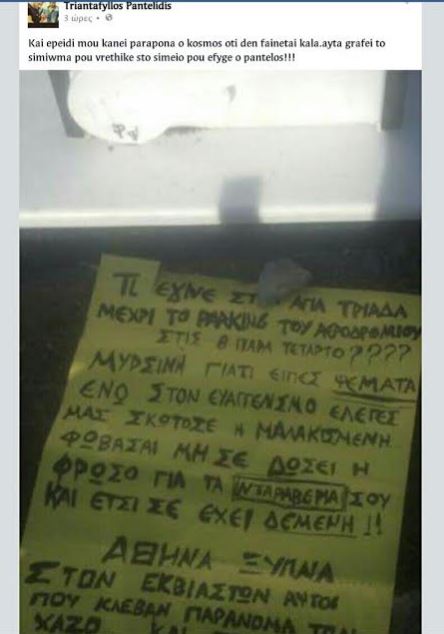 Triantafyllos Pantelidis
3 ώρες
Kai epeidi mou kanei parapona o kosmos oti den fainetai kala.ayta grafei to
simiwma pou vrethike sto simeio pou efyge o pantelos!!!
ΤΙ ΕΓΙΝΕ ΑΓΙΑ ΤΡΙΑΔΑ
ΜΕΧΡΙ ΤΟ PARKING ΤΟΥ ΑΕΡΟΔΡΟΜΙΟΥ
ΣΤΙΣ 8 ΠΑΡΑ ΤΕΤΑΡΤΟ????
ΜΥΡΣΙΝΗ ΓΙΑΤΙ ΕΙΠΕΣ ΨΕΜΑΤΑ
ΕΝΩ ΣΤΟΝ ΕΛΕΓΕΣ
ΜΑΣ ΣΚΟΤΩΣΕ Η ΜΑΛΑΚΙΣΜΕΝΗ
ΦΩΒΑΣΑΙ ΜΗ ΣΕ ΔΩΣΕΙ Η
ΦΡΩΣΟ ΓΙΑ ΤΑ ΝΤΑΡΑΒΕΡΙΑ ΣΟΥ
ΚΑΙ ΕΤΣΙ ΣΕ ΕΧΕΙ ΔΕΜΕΝΗ!!
ΑΘΗΝΑ ΞΥΠΝΑ
ΣΤΟΝ ΕΚΒΙΑΣΤΩΝ ΑΥΤΟΙ
ΠΟΥ ΚΛΕΒΑΝ ΠΑΡΑΝΟΜΑ ΤΟΝ
ΧΑΖΟ